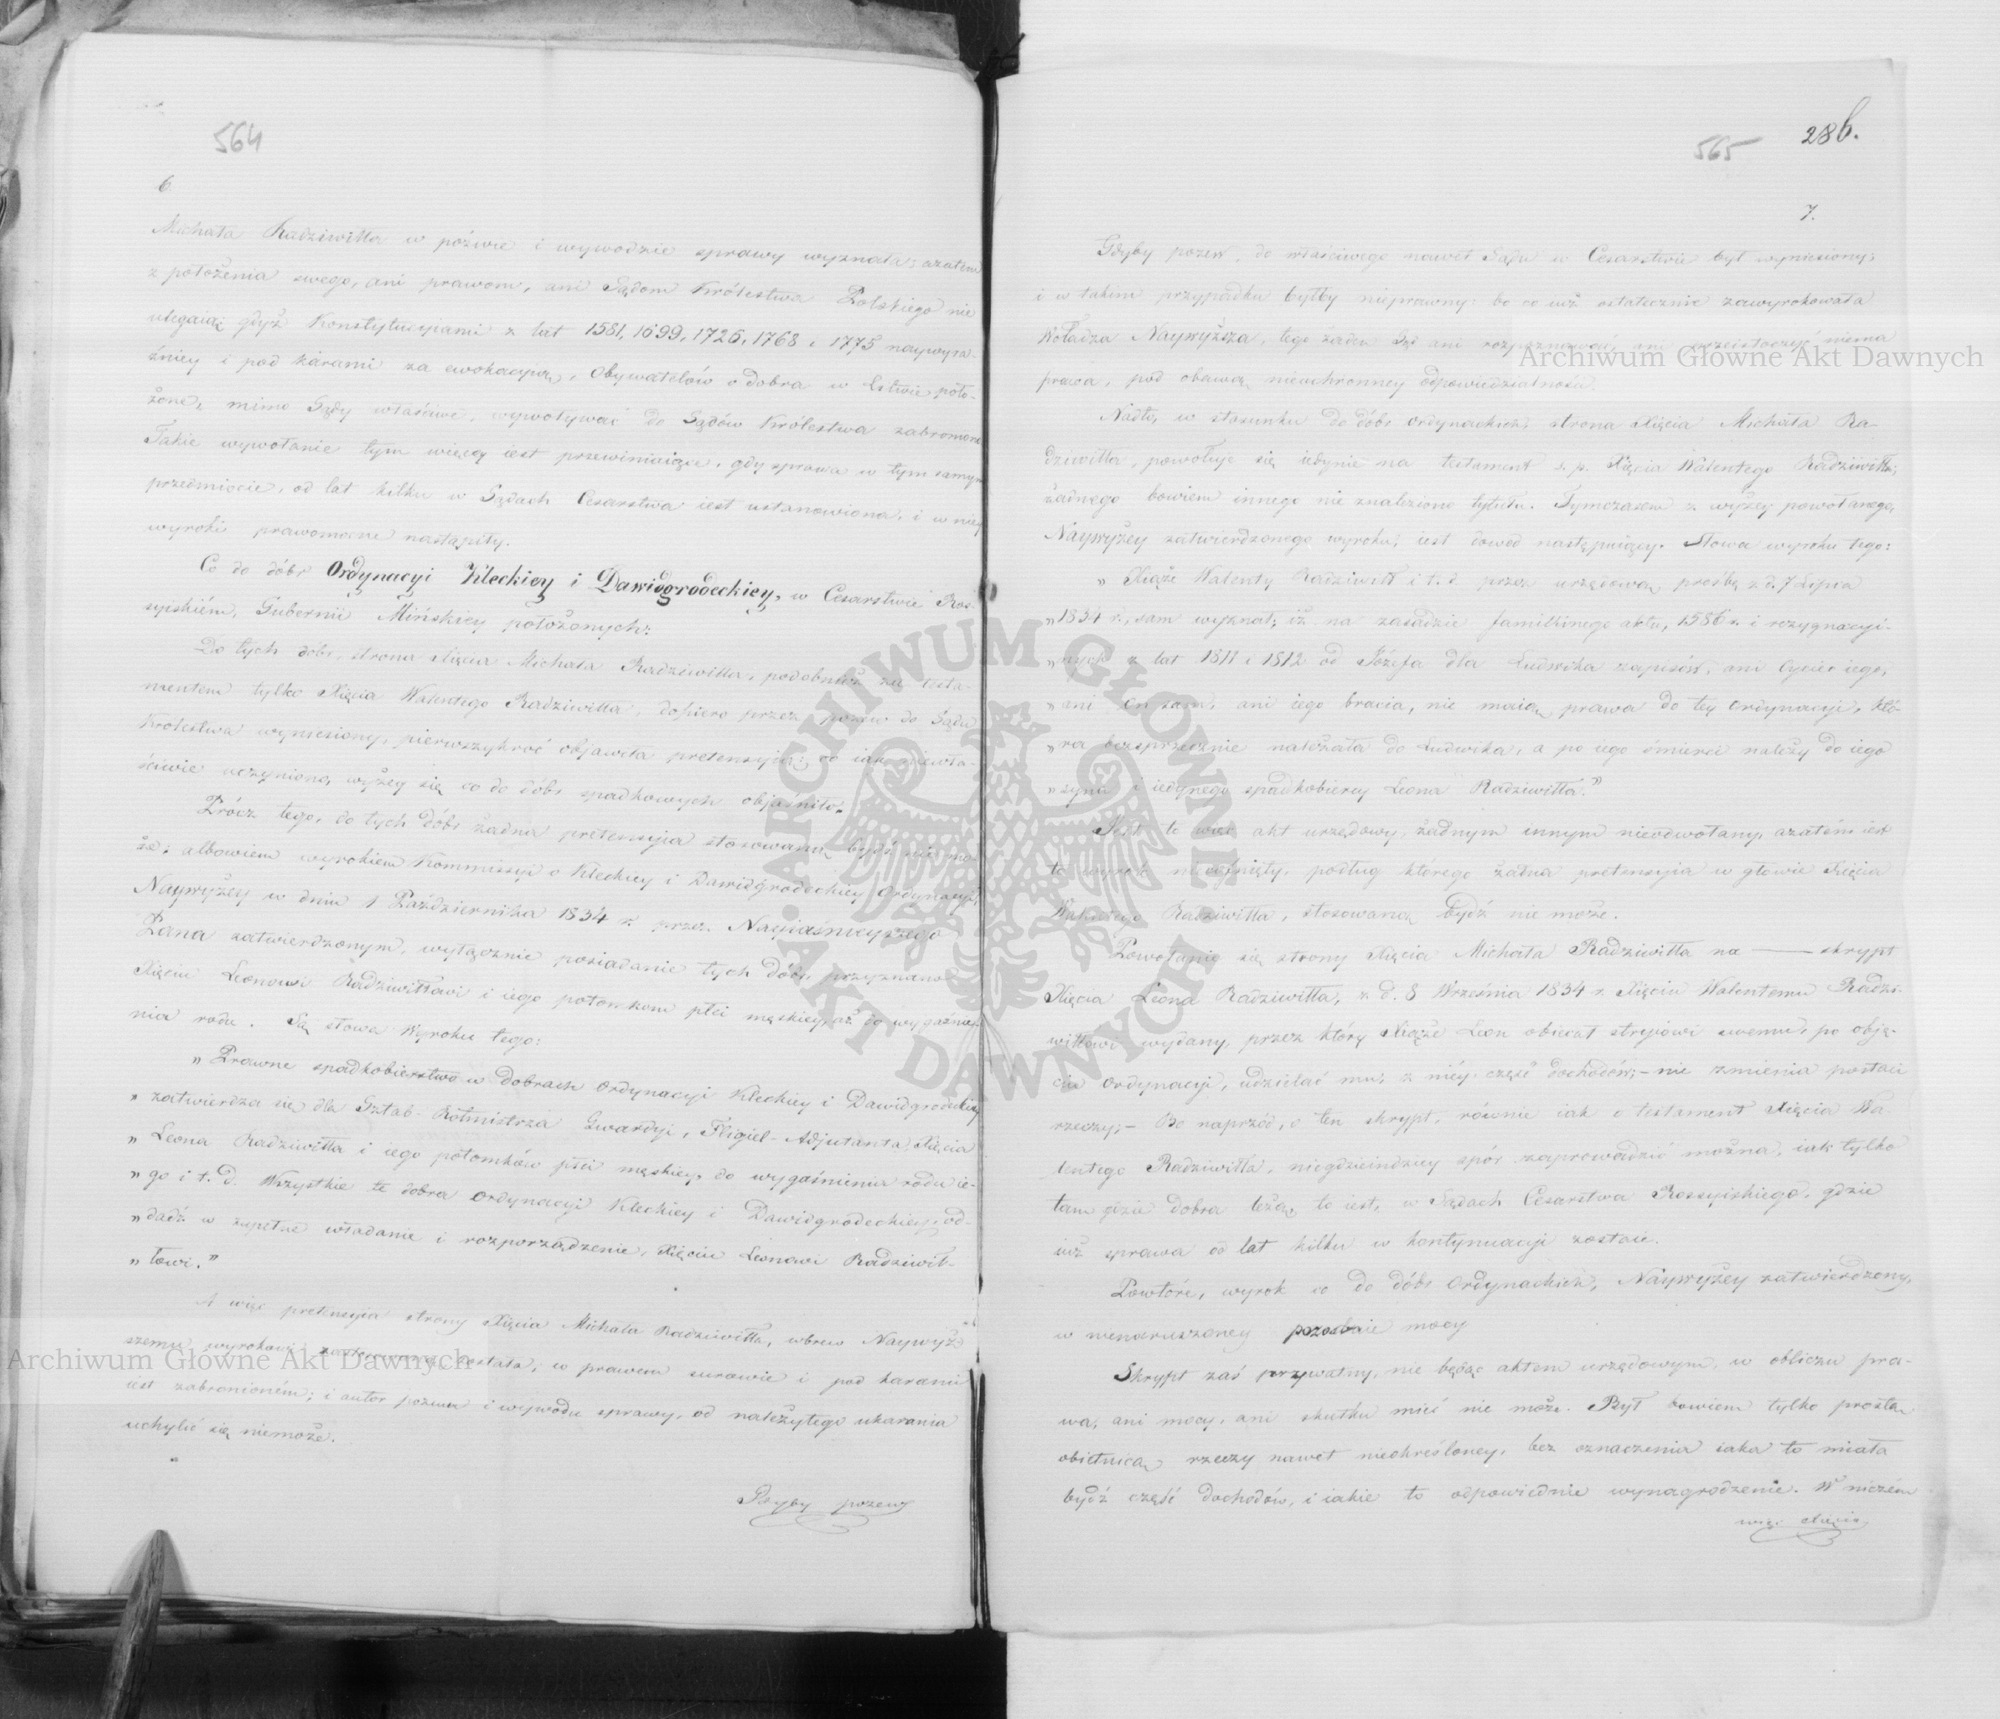 564
6
Michała Radziwiłła w pozwie i wywodzie sprawy wyznała; azatem
z położenia swego, ani prawom, ani Sądom Królestwa Polskiego nie
ulegaią; gdyż Konstytucyiami z lat 1581, 1699, 1726, 1768 i 1775 naywyra-
źniey i pod karami za ewokacyią, Obywatelów o dobra w Litwie poło-
żone, mimo Sądy właściwe, wywoływać do Sądów Królestwa zabroniono
Takie wywołanie tym więcey iest przewiniaiące, gdy sprawa w tym samym
przedmiocie, od lat kilku w Sądach Cesarstwa iest ustanowiona, i w niey
wyroki prawomocne nastąpiły.
Co do dóbr Ordynacyi Kleckiey i Dawidgrodeckiey, w Cesarstwie Ros-
syiskiém, Gubernii Mińskiey położonych:
Do tych dóbr, strona Xięcia Michała Radziwiłła, podobnież za testa-
mentem tylko Xięcia Walentego Radziwiłła, dopiero przez pozew do Sądu
Królestwa wyniesiony, pierwszykroć objawiła pretensyią; co iak niewła-
ściwie uczyniono, wyżey się co do dóbr spadkowych objaśniło.
Prócz tego, do tych dóbr żadna pretensyia stosowaną bydź nie mo-
że; albowiem wyrokiem Kommissyi o Kleckiey i Dawidgrodeckiey Ordynacyi,
Naywyżey w dniu 1 Października 1834 r. przez Nayiaśnieyszego
Pana zatwierdzonym, wyłącznie posiadanie tych dóbr, przyznano
Xięciu Leonowi Radziwiłłowi i iego potomkom płci męskiey, aż do wygaśnie-
nia rodu. Są słowa Wyroku tego:
„Prawne spadkobierstwo w dobrach Ordynacyi Kleckiey i Dawidgrodeckiey
„zatwierdza się dla Sztab-Rotmistrza Gwardyi, Fligiel-Adjutanta, Xięcia
„Leona Radziwiłła i iego potomków płci męskiey, do wygaśnienia rodu ie-
„go i t. d. Wszystkie te dobra Ordynacyi Kleckiey i Dawidgrodeckiey, od-
„dadź w zupełne władanie i rozporządzenie, Xięciu Leonowi Radziwił-
„łowi.”
A więc pretensyia strony Xięcia Michała Radziwiłła, wbrew Naywyż-
szemu wyrokowi zastosowana została, co prawem surowie i pod karami
iest zabronioném; i autor pozwu i wywodu sprawy, od należytego ukarania
uchylić się niemoże.
Gdyby pozew
565
286.
7.
Gdyby pozew, do właściwego nawet Sądu w Cesarstwie był wyniesiony;
i w takim przypadku byłby nieprawny; bo co iuż ostatecznie zawyrokowała
Władza Naywyższa, tego żaden Sąd ani rozpoznawać, ani przeistoczyć niema
prawa, pod obawą nieuchronney odpowiedzialności.
Nadto, w stosunku do dóbr Ordynackich, strona Xięcia Michała Ra-
dziwiłła, powołuje się iedynie na testament ś. p. Xięcia Walentego Radziwiłła;
żadnego bowiem innego nie znaleziono tytułu. Tymczasem z wyżey powołanego,
Naywyżey zatwierdzonego wyroku, iest dowód następuiący. Słowa wyroku tego:
„Xiąże Walenty Radziwiłł i t. d. przez urzędową prośbę z d. 7 Lipca
„1834 r., sam wyznał; iż na zasadzie familiinego aktu, 1586 r. i rezygnacyi-
„nych z lat 1811 i 1812 od Józefa dla Ludwika zapisów, ani Oyciec iego,
„ani on sam, ani iego bracia, nie maią prawa do tey Ordynacyi, któ-
„ra bezsprzecznie należała do Ludwika, a po iego śmierci należy do iego
„syna i iedynego spadkobiercy Leona Radziwiłła.”
Jest to więc akt urzędowy, żadnym innym nieodwołany, azatém iest
to wyrok niecofnięty, podług którego żadna pretensyia w głowie Xięcia
Walentego Radziwiłła, stosowaną bydź nie może.
Powołanie się strony Xięcia Michała Radziwiłła na — skrypt
Xięcia Leona Radziwiłła, z d. 8 Września 1834 r. Xięciu Walentemu Radzi-
wiłłowi wydany, przez który Xiąże Leon obiecał stryiowi swemu, po obję-
ciu Ordynacyi, udzielać mu, z niey część dochodów; – nie zmienia postaci
rzeczy; – Bo naprzód, o ten skrypt, równie iak o testament Xięcia Wa-
lentego Radziwiłła, niegdzieindziey spór zaprowadzić można, iak tylko
tam gdzie dobra leżą, to iest, w Sądach Cesarstwa Rossyiskiego, gdzie
iuż sprawa od lat kilku w kontynuacyi zostaie.
Powtóre, wyrok co do dóbr Ordynackich, Naywyżey zatwierdzony,
w nienaruszoney pozostaie mocy
Skrypt zaś prywatny, nie będąc aktem urzędowym, w obliczu pra-
wa, ani mocy, ani skutku mieć nie może. Był bowiem tylko prostą
obietnicą rzeczy nawet nieokreśloney, bez oznaczenia iaka to miała
bydź część dochodów, i iakie to odpowiednie wynagrodzenie. W niczém
więc Xięcia
Archiwum Główne Akt Dawnych
Archiwum Główne Akt Dawnych
ARCHIWUM GŁÓWNE AKT DAWNYCH